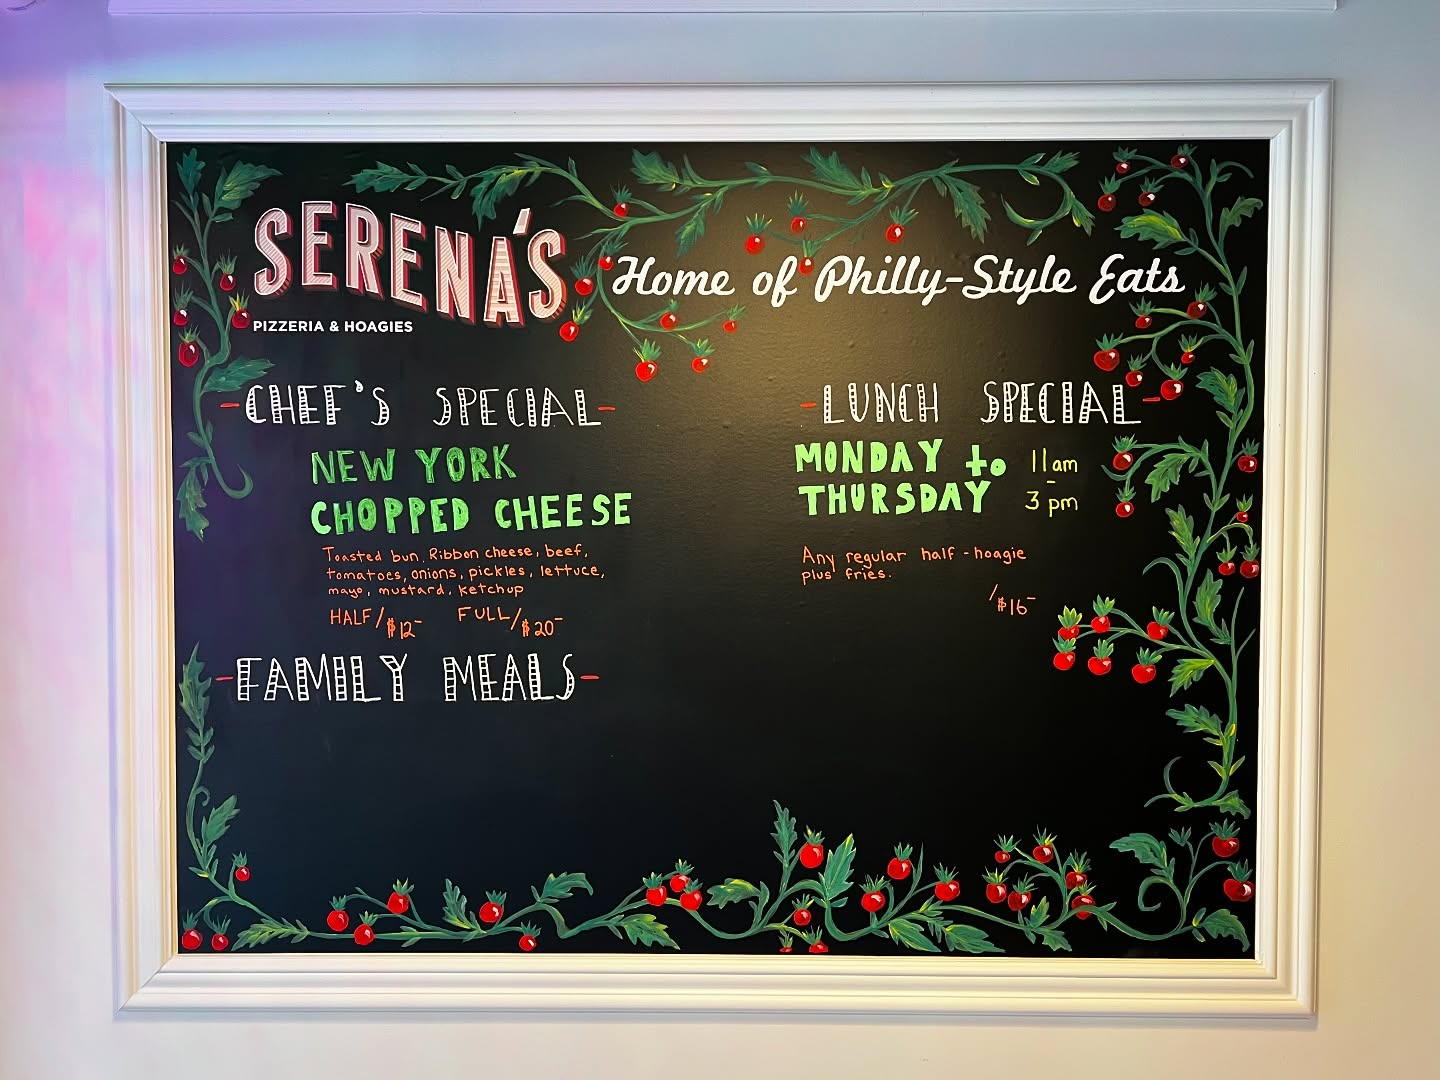 SERENA'S
PIZZERIA & HOAGIES
Home of Philly-Style Eats
-CHEF'S SPECIAL-
NEW YORK
CHOPPED CHEESE
Toasted bun, Ribbon cheese, beef,
tomatoes, onions, pickles, lettuce,
mayo, mustard, ketchup
HALF/$12- FULL/$20-
-FAMILY MEALS-
-LUNCH SPECIAL-
MONDAY to 11am
-
THURSDAY 3pm
Any regular half-hoagie
plus fries.
/$16-